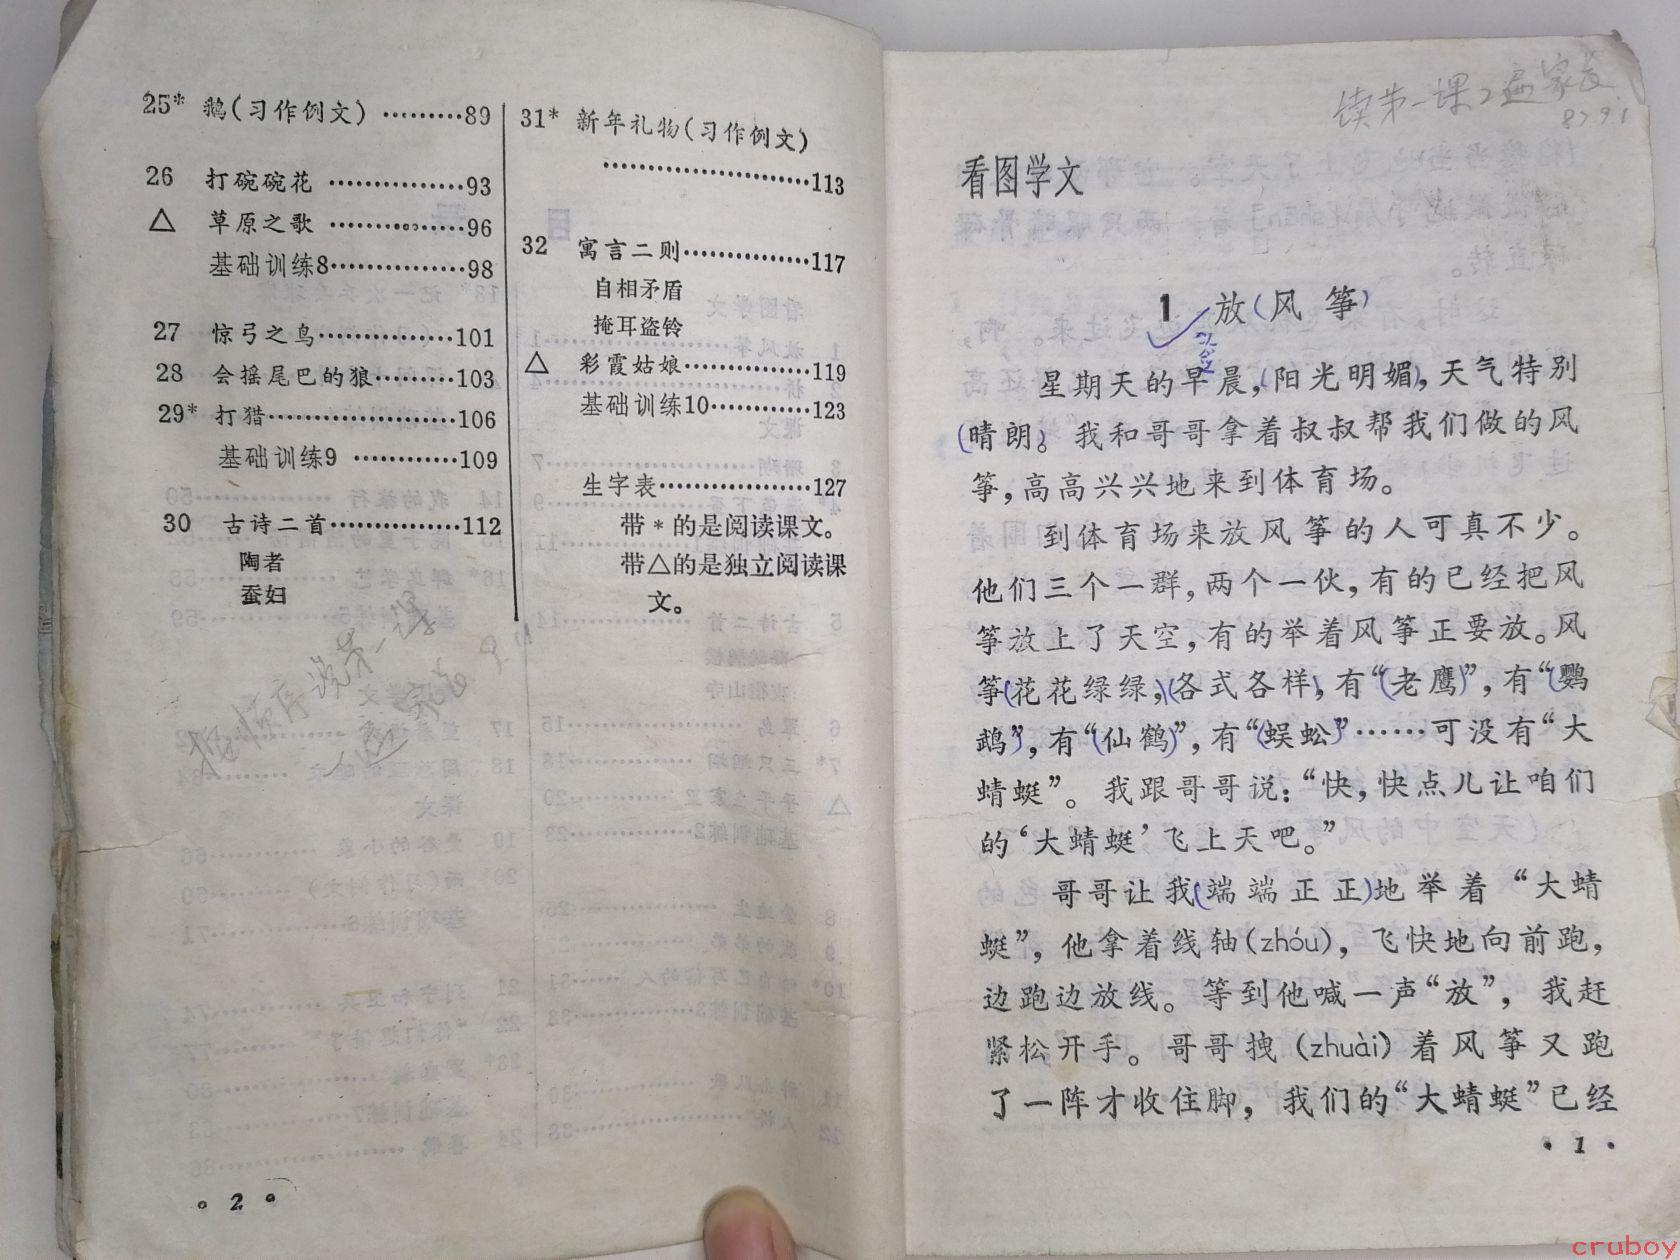 25* 鹅(习作例文) ………89
26 打碗碗花 ……………93
△ 草原之歌 ……………96
基础训练8……………98
27 惊弓之鸟……………101
28 会摇尾巴的狼………103
29* 打猎…………………106
基础训练9 …………109
30 古诗二首……………112
陶者
蚕妇
31* 新年礼物(习作例文)
……………………113
32 寓言二则……………117
自相矛盾
掩耳盗铃
△ 彩霞姑娘……………119
基础训练10…………123
生字表………………127
带*的是阅读课文。
带△的是独立阅读课
文。
家长 9.11
·2·
读第一课2遍 家长
87.9.1
看图学文
1 放(风筝)
星期天的早晨,(阳光明媚),天气特别
(晴朗)。我和哥哥拿着叔叔帮我们做的风
筝,高高兴兴地来到体育场。
到体育场来放风筝的人可真不少。
他们三个一群,两个一伙,有的已经把风
筝放上了天空,有的举着风筝正要放。风
筝(花花绿绿),(各式各样),有“(老鹰)”,有“(鹦
鹉)”,有“(仙鹤)”,有“(蜈蚣)”……可没有“大
蜻蜓”。我跟哥哥说:“快,快点儿让咱们
的‘大蜻蜓’飞上天吧。”
哥哥让我(端端正正)地举着“大蜻
蜓”,他拿着线轴(zhóu),飞快地向前跑,
边跑边放线。等到他喊一声“放”,我赶
紧松开手。哥哥拽(zhuài)着风筝又跑
了一阵才收住脚,我们的“大蜻蜓”已经
·1·
cruboy